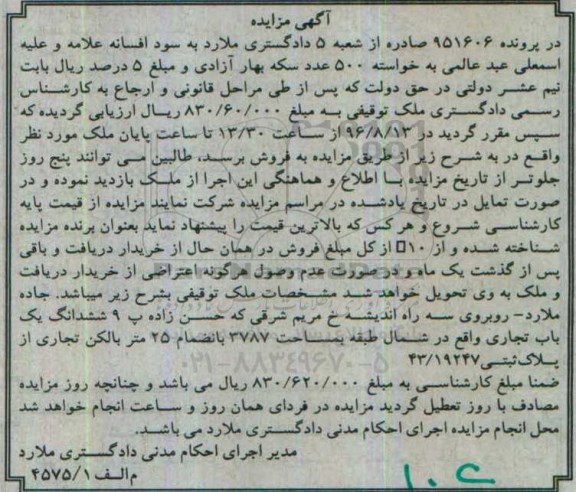 آگهی مزایده
در پرونده ۹۵۱۶۰۶ صادره از شعبه ۵ دادگستری ملارد به سود افسانه علامه و علیه
اسمعلی عبد عالمی به خواسته ۵۰۰ عدد سکه بهار آزادی و مبلغ ۵ درصد ریال بابت
نیم عشر دولتی در حق دولت که پس از طی مراحل قانونی و ارجاع به کارشناس
رسمی دادگستری ملک توقیفی به مبلغ ۸۳۰/۶۰/۰۰۰ ریال ارزیابی گردیده که
سپس مقرر گردید در ۹۶/۸/۱۳ از ساعت ۱۳/۳۰ تا ساعت پایان ملک مورد نظر
واقع در به شرح زیر از طریق مزایده به فروش برسد. طالبین می توانند پنج روز
جلوتر از تاریخ مزایده با اطلاع و هماهنگی این اجرا از ملک بازدید نموده و در
صورت تمایل در تاریخ یادشده در مراسم مزایده شرکت نمایند مزایده از قیمت پایه
کارشناسی شروع و هر کس که بالاترین قیمت را پیشنهاد نماید بعنوان برنده مزایده
شناخته شده و از ۱۰□ از کل مبلغ فروش در همان حال از خریدار دریافت و باقی
پس از گذشت یک ماه و در صورت عدم وصول هرگونه اعتراضی از خریدار دریافت
و ملک به وی تحویل خواهد شد مشخصات ملک توقیفی بشرح زیر میباشد. جاده
ملارد- روبروی سه راه اندیشه خ مریم شرقی که حسن زاده پ ۹ ششدانگ یک
باب تجاری واقع در شمال طبقه بمساحت ۳۷۸۷ بانضمام ۲۵ متر بالکن تجاری از
پلاک ثبتی ۴۳/۱۹۲۴۷
ضمنا مبلغ کارشناسی به مبلغ ۸۳۰/۶۲۰/۰۰۰ ریال می باشد و چنانچه روز مزایده
مصادف با روز تعطیل گردید مزایده در فردای همان روز و ساعت انجام خواهد شد
محل انجام مزایده اجرای احکام مدنی دادگستری ملارد می باشد.
مدیر اجرای احکام مدنی دادگستری ملارد
م الف ۴۵۷۵/۱
۰۲۱-۸۸۳۴۹۶۷۰-۵